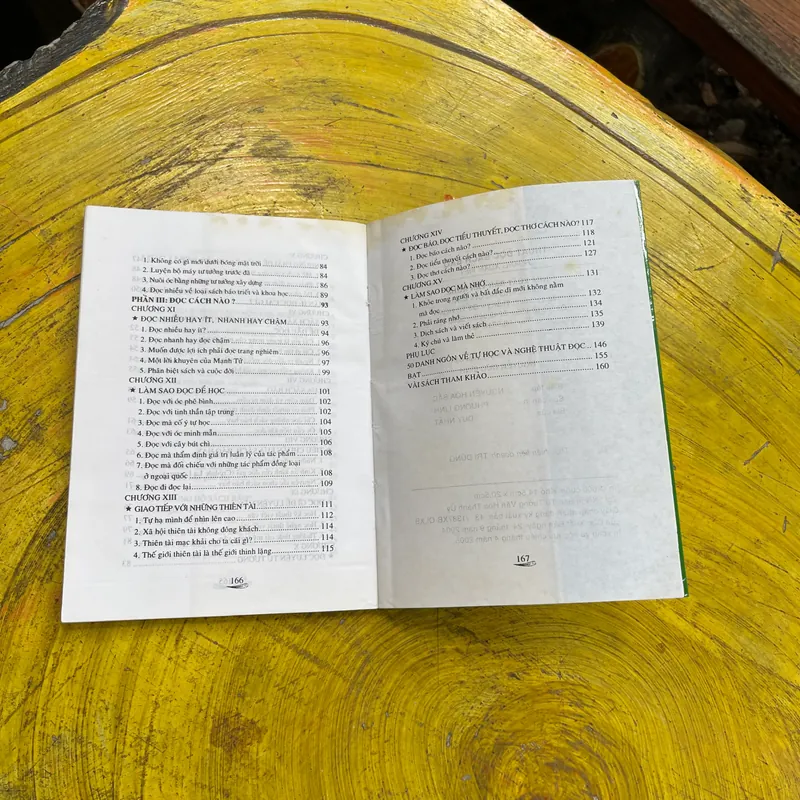 1. Không có gì mới dưới bóng mặt trời ..................... 84
2. Luyện bộ máy tư tưởng trước đã ........................ 84
3. Nuôi óc bằng những tư tưởng xây dựng ............... 86
4. Đọc nhiều về loại sách báo triết và khoa học ........ 89
PHẦN III: ĐỌC CÁCH NÀO ? ............................... 93
CHƯƠNG XI
★ ĐỌC NHIỀU HAY ÍT, NHANH HAY CHẬM ............ 93
1. Đọc nhiều hay ít? .......................................... 94
2. Đọc nhanh hay đọc chậm ................................ 96
3. Muốn được lợi ích phải đọc trang nghiêm ............. 96
4. Một lời khuyên của Mạnh Tử ............................ 97
5. Phân biệt sách và cuộc đời ............................... 99
CHƯƠNG XII
★ LÀM SAO ĐỌC ĐỂ HỌC ................................ 101
1. Đọc với óc phê bình ....................................... 102
2. Đọc với tinh thần tập trung .............................. 102
3. Đọc mà cố ý tự học ........................................ 104
4. Đọc với óc minh mẫn ..................................... 105
5. Đọc với cây bút chì ........................................ 106
6. Đọc mà thẩm định giá trị luân lý của tác phẩm ...... 108
7. Đọc mà đối chiếu với những tác phẩm đồng loại
ở ngoại quốc ................................................. 108
8. Đọc đi đọc lại ............................................... 109
CHƯƠNG XIII
★ GIAO TIẾP VỚI NHỮNG THIÊN TÀI .................... 111
1. Tự hạ mình để nhìn lên cao .............................. 112
2. Xã hội thiên tài không đông khách ..................... 114
3. Thiên tài mạc khải cho ta cái gì? ....................... 114
4. Thế giới thiên tài là thế giới thinh lặng ................. 115
166
CHƯƠNG XIV
★ ĐỌC BÁO, ĐỌC TIỂU THUYẾT, ĐỌC THƠ CÁCH NÀO? 117
1. Đọc báo cách nào? ........................................ 118
2. Đọc tiểu thuyết cách nào? ............................... 121
3. Đọc thơ cách nào? ........................................ 127
CHƯƠNG XV
★ LÀM SAO ĐỌC MÀ NHỚ ................................ 131
1. Khỏe trong người và bất đắc dĩ mới không nằm
mà đọc ........................................................ 132
2. Phải ráng nhớ ............................................... 134
3. Dịch sách và viết sách .................................... 135
4. Ký chú và làm thẻ .......................................... 139
PHỤ LỤC
50 DANH NGÔN VỀ TỰ HỌC VÀ NGHỆ THUẬT ĐỌC ... 146
BẠT ............................................................... 155
VÀI SÁCH THAM KHẢO ....................................... 160
167